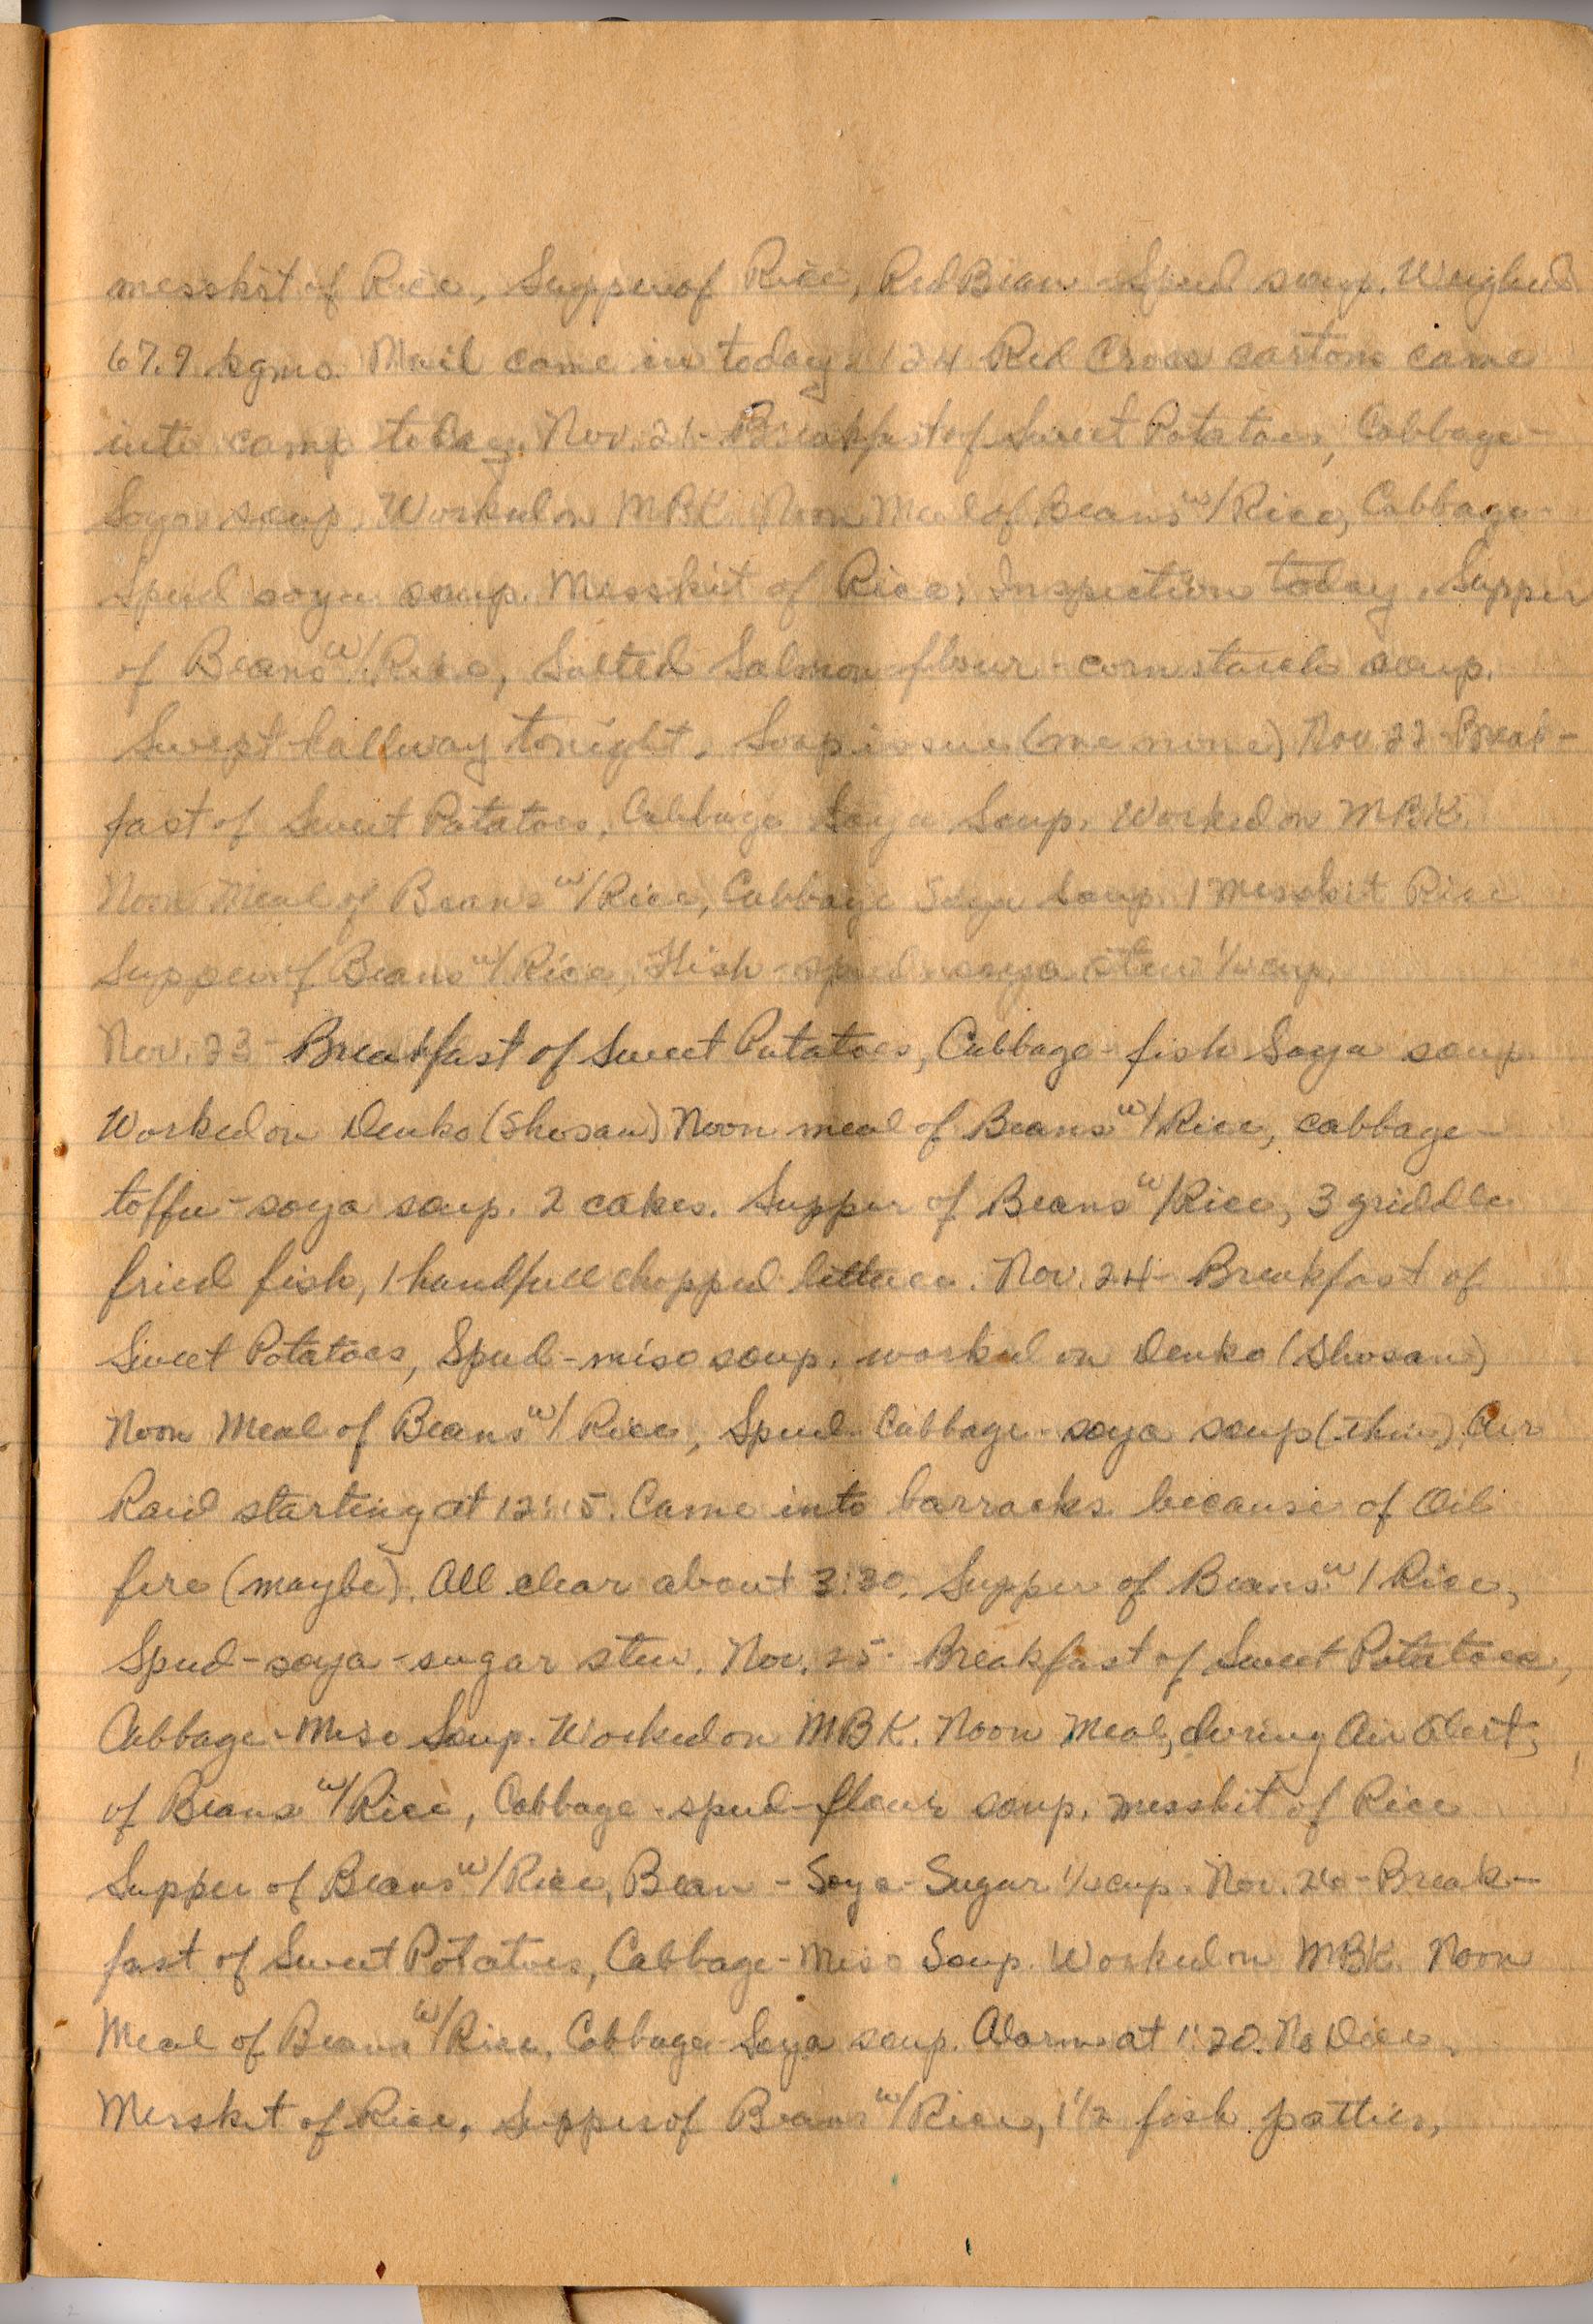 messkit of Rice, Supper of Rice, Red Bean - Spud soup. Weighed
67.9 kgms. Mail came in today. 124 Red Cross cartons came
into camp today. Nov. 21 - Breakfast of Sweet Potatoes, Cabbage -
Soya soup. Worked on MBK. Noon Meal of Beans w/Rice, Cabbage -
Spud soya soup. Messkit of Rice. Inspection today. Supper
of Beans w/Rice, Salted Salmon - flour - cornstarch soup.
Swept hallway tonight. Soap issue (me none) Nov 22 - Break-
fast of Sweet Potatoes, Cabbage Soya Soup. Worked on MBK.
Noon Meal of Beans w/Rice, Cabbage Soya Soup. 1 Messkit Rice
Supper of Beans w/Rice, Fish - spud - soya stew cup.
Nov. 23 - Breakfast of Sweet Potatoes, Cabbage - fish Soya soup
Worked on Denko (Shosan) Noon meal of Beans w/Rice, cabbage -
toffu - soya soup. 2 cakes. Supper of Beans w/Rice, 3 griddle
fried fish, 1 handfull chopped lettuce. Nov. 24 - Breakfast of
Sweet Potatoes, Spud - miso soup. worked on Denko (Shosan)
Noon Meal of Beans w/Rice, Spud - Cabbage - soya soup (thin). Air
Raid starting at 12:15. Came into barracks because of Oil
fire (maybe). All clear about 3:30. Supper of Beans w/Rice,
Spud - soya - sugar stew. Nov. 25 - Breakfast of Sweet Potatoes,
Cabbage - Miso Soup. Worked on MBK. Noon Meal, during Air Alert,
of Beans w/Rice, Cabbage - spud - flour soup. messkit of Rice
Supper of Beans w/Rice, Bean - Soya - Sugar cup. Nov. 26 - Break-
fast of Sweet Potatoes, Cabbage - Miso Soup. Worked on MBK. Noon
Meal of Beans w/Rice, Cabbage - Soya soup. Alarm at 1:20. No Dice.
Messkit of Rice. Supper of Beans w/Rice, 1 1/2 fish patties,